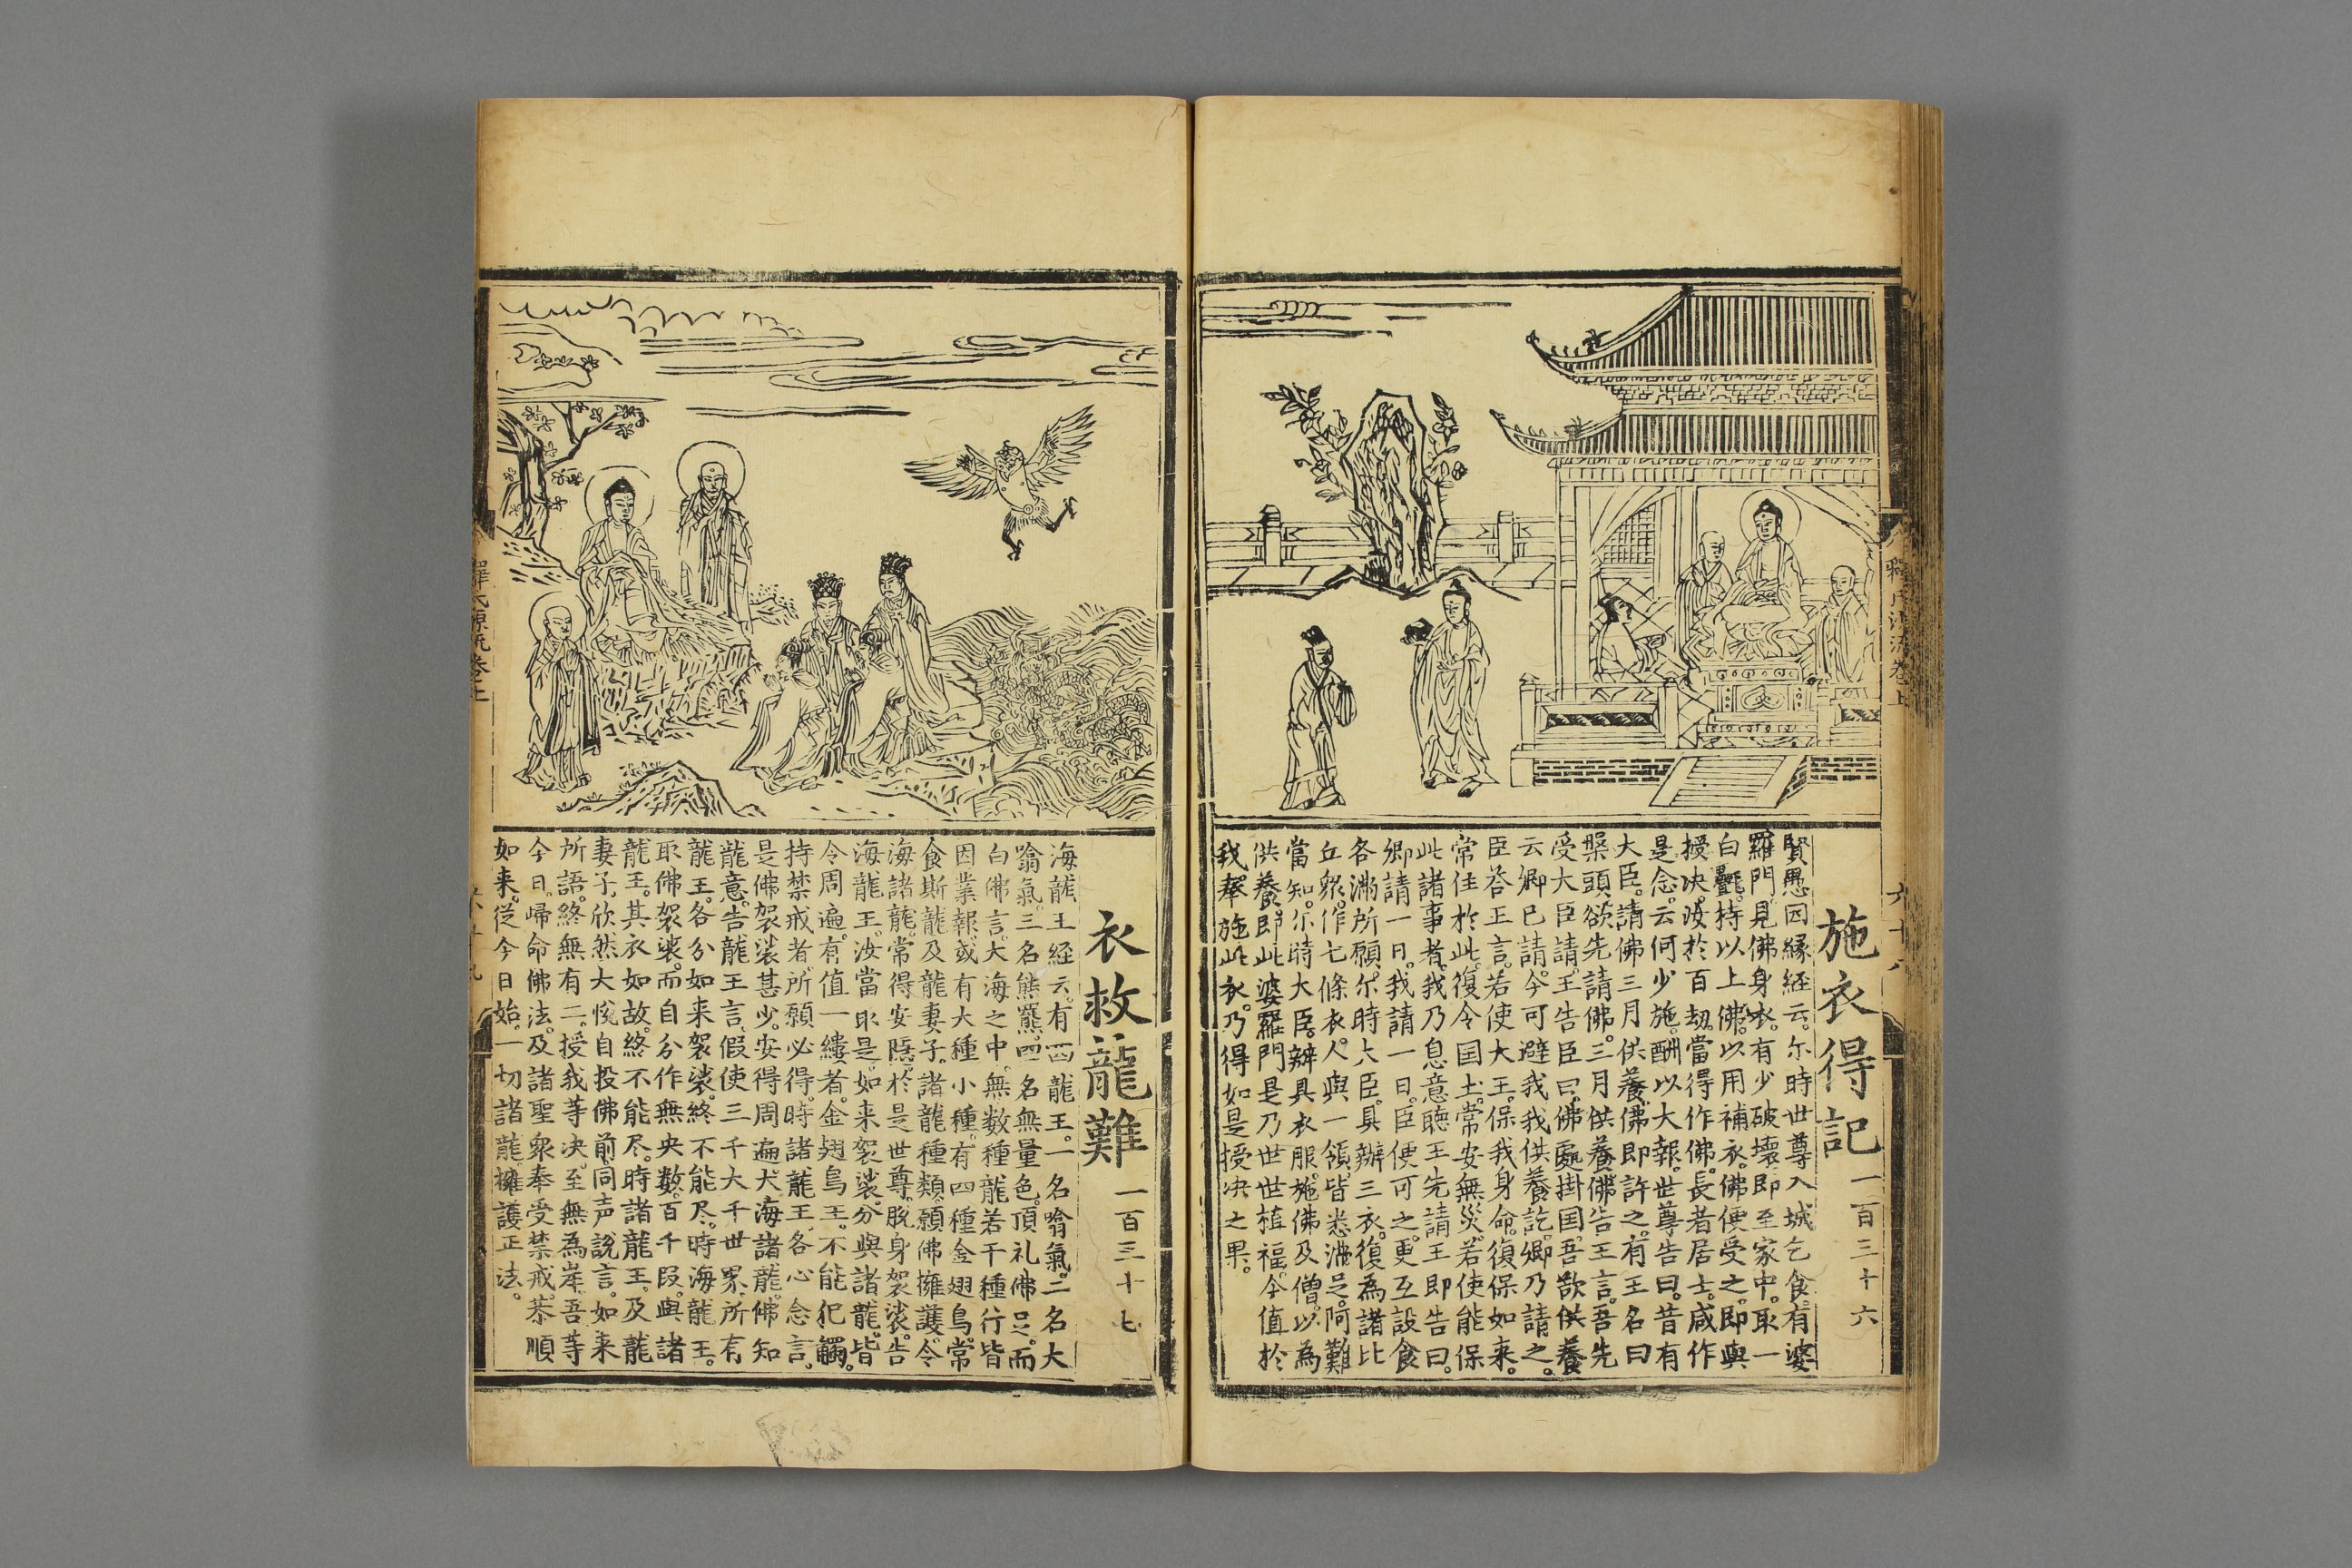 釋氏源流卷上
六十八
施衣得記 一百三十六
賢愚因縁経云。尓時世尊入城乞食。有婆
羅門。見佛身衣。有少破壊。即至家中。取一
白氎。持以上佛。以用補衣。佛便受之。即與
授决。汝於百劫。當得作佛。長者居士。咸作
是念。云何少施。酬以大報。世尊告曰。昔有
大臣。請佛三月供養。佛即許之。有王名曰
槃頭。欲先請佛。三月供養。佛告王言。吾先
受大臣請。王告臣曰。佛處掛囯。吾欲供養
云卿已請。今可避我。我供養訖。卿乃請之。
臣荅王言。若使大王。保我身命。復保如来。
常住於此。復令囯土。常安無災。若使能保
此諸事者。我乃息意。聴王先請。王即告曰。
卿請一日。我請一日。臣便可之。更互設食
各滿所願。尓時大臣。具辦三衣。復為諸比
丘衆。作七條衣。人與一領。皆悉滿足。阿難
當知。尓時大臣。辦具衣服。施佛及僧。以為
供養。即此婆羅門是。乃世世植福。今值於
我。奉施此衣。乃得如是授决之果。
衣救龍難 一百三十七
海龍王経云。有四龍王。一名噏氣。二名大
噏氣。三名熊羆。四名無量色。頂礼佛足。而
白佛言。大海之中。無数種龍若干種行皆
因業報。或有大種小種。有四種金翅鳥。常
食斯龍及龍妻子。諸龍種類。願佛擁護。令
海諸龍。常得安隠。於是世尊。脱身袈裟。告
海龍王。汝當取是。如来袈裟。分與諸龍。皆
令周遍。有值一縷者。金翅鳥王。不能犯觸。
持禁戒者。所願必得。時諸龍王。各心念言。
是佛袈裟甚少。安得周遍。大海諸龍。佛知
龍意。告龍王言。假使三千大千世界。所有
龍王。各分如来袈裟。終不能尽。時海龍王。
取佛袈裟。而自分作無央数。百千段。與諸
龍王。其衣如故。終不能尽。時諸龍王。及龍
妻子。欣然大悅。自投佛前。同声說言。如来
所語。終無有二。授我等决。至無為岸。吾等
今日。歸命佛法。及諸聖衆。奉受禁戒。恭順
如来。従今日始。一切諸龍。擁護正法。
釋氏源流卷上
六十九